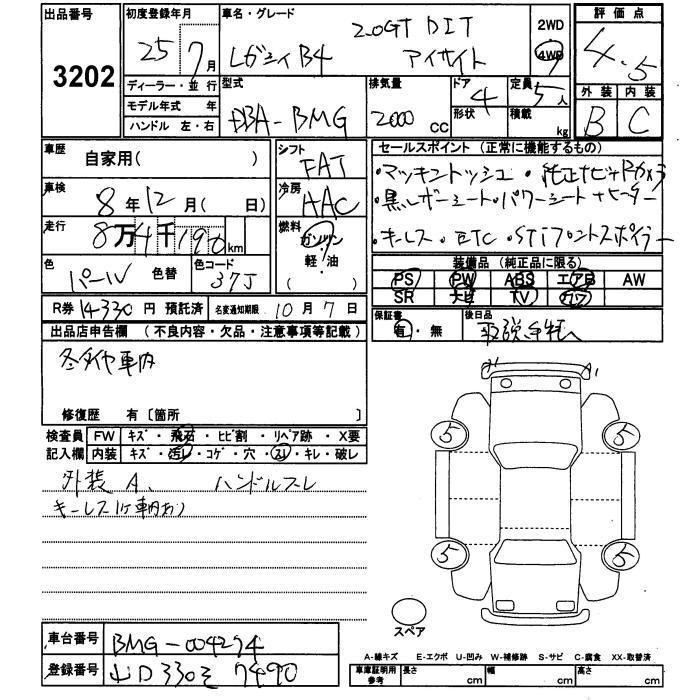 出品番号
3202
初度登録年月
25 7月
ディーラー・並行
モデル年式 年
ハンドル 左・右
車名・グレード
2.0GT DIT
レガシィ B4 アイサイト
2WD
4WD
評価点
4.5
外装 内装
B C
型式
DBA-BMG
排気量
2000 cc
ドア
4
形状
定員
5人
積載
kg
車歴
自家用( )
シフト
FAT
セールスポイント (正常に機能するもの)
・マッキントッシュ・純正ナビ+Bカメラ
・黒レザーシート・パワーシート+ヒーター
・キーレス・ETC・STiフロントスポイラー
車検
8年12月( 日)
冷房
AAC
走行
8万4千196km
燃料
ガソリン
軽・油
( )
色
パール
色替
色コード
37J
装備品 (純正品に限る)
PS PW ABS エアB AW
SR ナビ TV カワ
R券 14330円 預託済
名変通知期限 10月7日
保証書
有・無
後日品
取説
出品店申告欄 (不良内容・欠品・注意事項等記載)
冬タイヤ車内
修復歴 有〔箇所 〕
検査員 FW キズ・飛石・ヒビ割・リペア跡・X要
記入欄 内装 キズ・汚レ・コゲ・穴・スレ・キレ・破レ
外装A、 ハンドルスレ
キーレス1ケ車内あり
5 5
5 5
スペア
車台番号 BMG-004274
登録番号 7490
A-線キズ E-エクボ U-凹み W-補修跡 S-サビ C-腐食 XX-取替済
車庫証明用参考 長さ cm 幅 cm 高さ cm